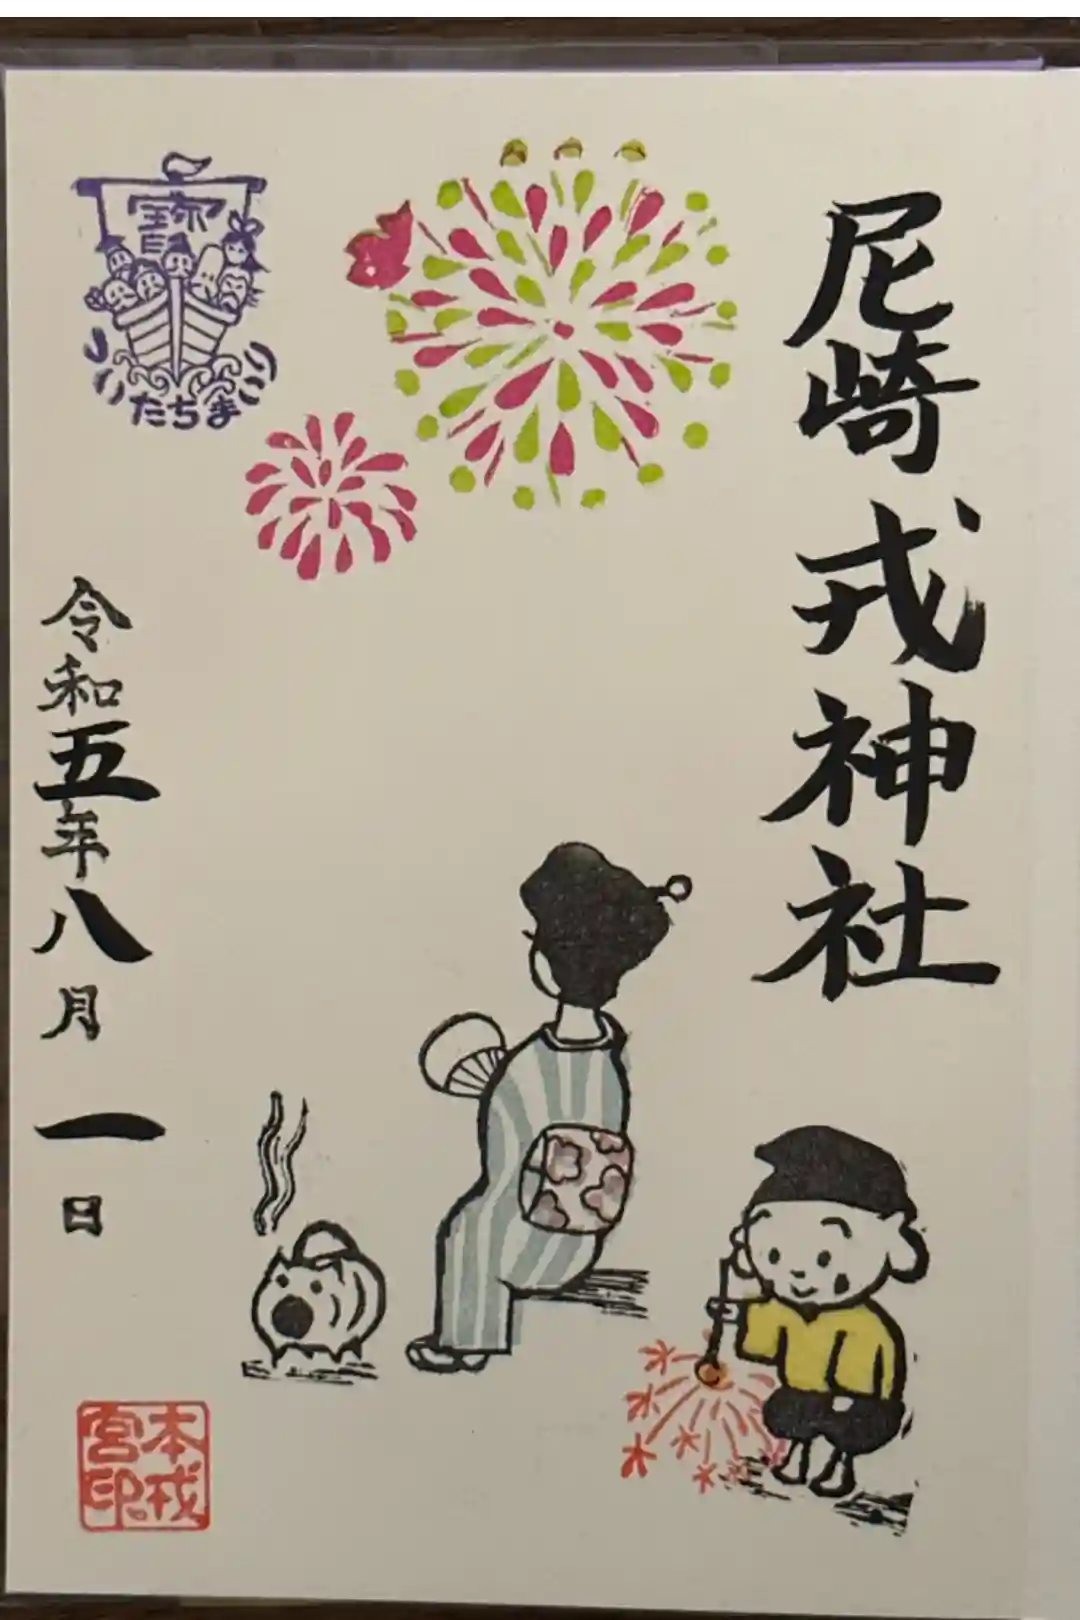 尼崎戎神社
寳
たちま
令和五年八月一日
本戎
宮印